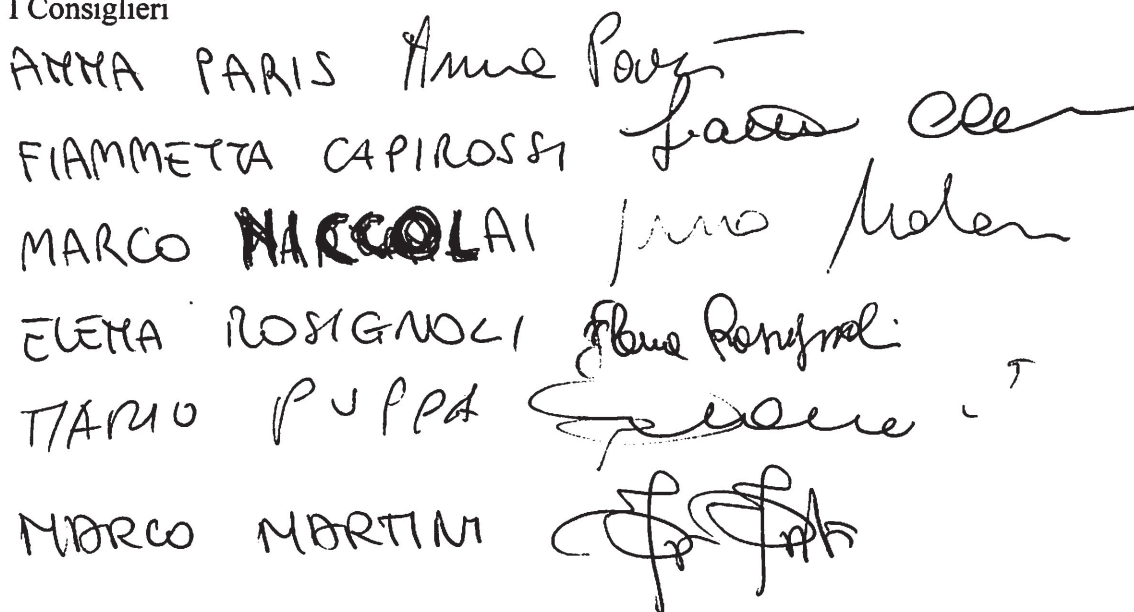 I Consiglieri
ANNA PARIS Anna Paris
FIAMMETTA CAPIROSSI
MARCO NICCOLAI
ELENA ROSIGNOLI Elena Rosignoli
MARIO PUPPA
MARCO MARTINI